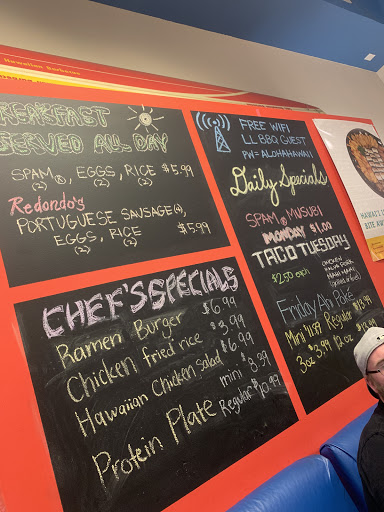 Hawaiian Barbecue
BREAKFAST
SERVED ALL DAY
SPAM(2), EGGS(2), RICE(2) $5.99
Redondo's
PORTUGUESE SAUSAGE(4),
EGGS(2), RICE(2) $5.99
CHEF'S SPECIALS
Ramen Burger $6.99
Chicken fried rice $3.99
Hawaiian Chicken salad $6.99
mini $8.39
Protein Plate Regular $10.99
FREE WIFI
LL BBQ GUEST
PW=ALOHAHAWAII
Daily Specials
SPAM MUSUBI
MONDAY $1.00
TACO TUESDAY
$2.50 each
CHICKEN
Friday Ahi Poke
Mini Regular
3oz 3.99 12oz
HAWAII'S